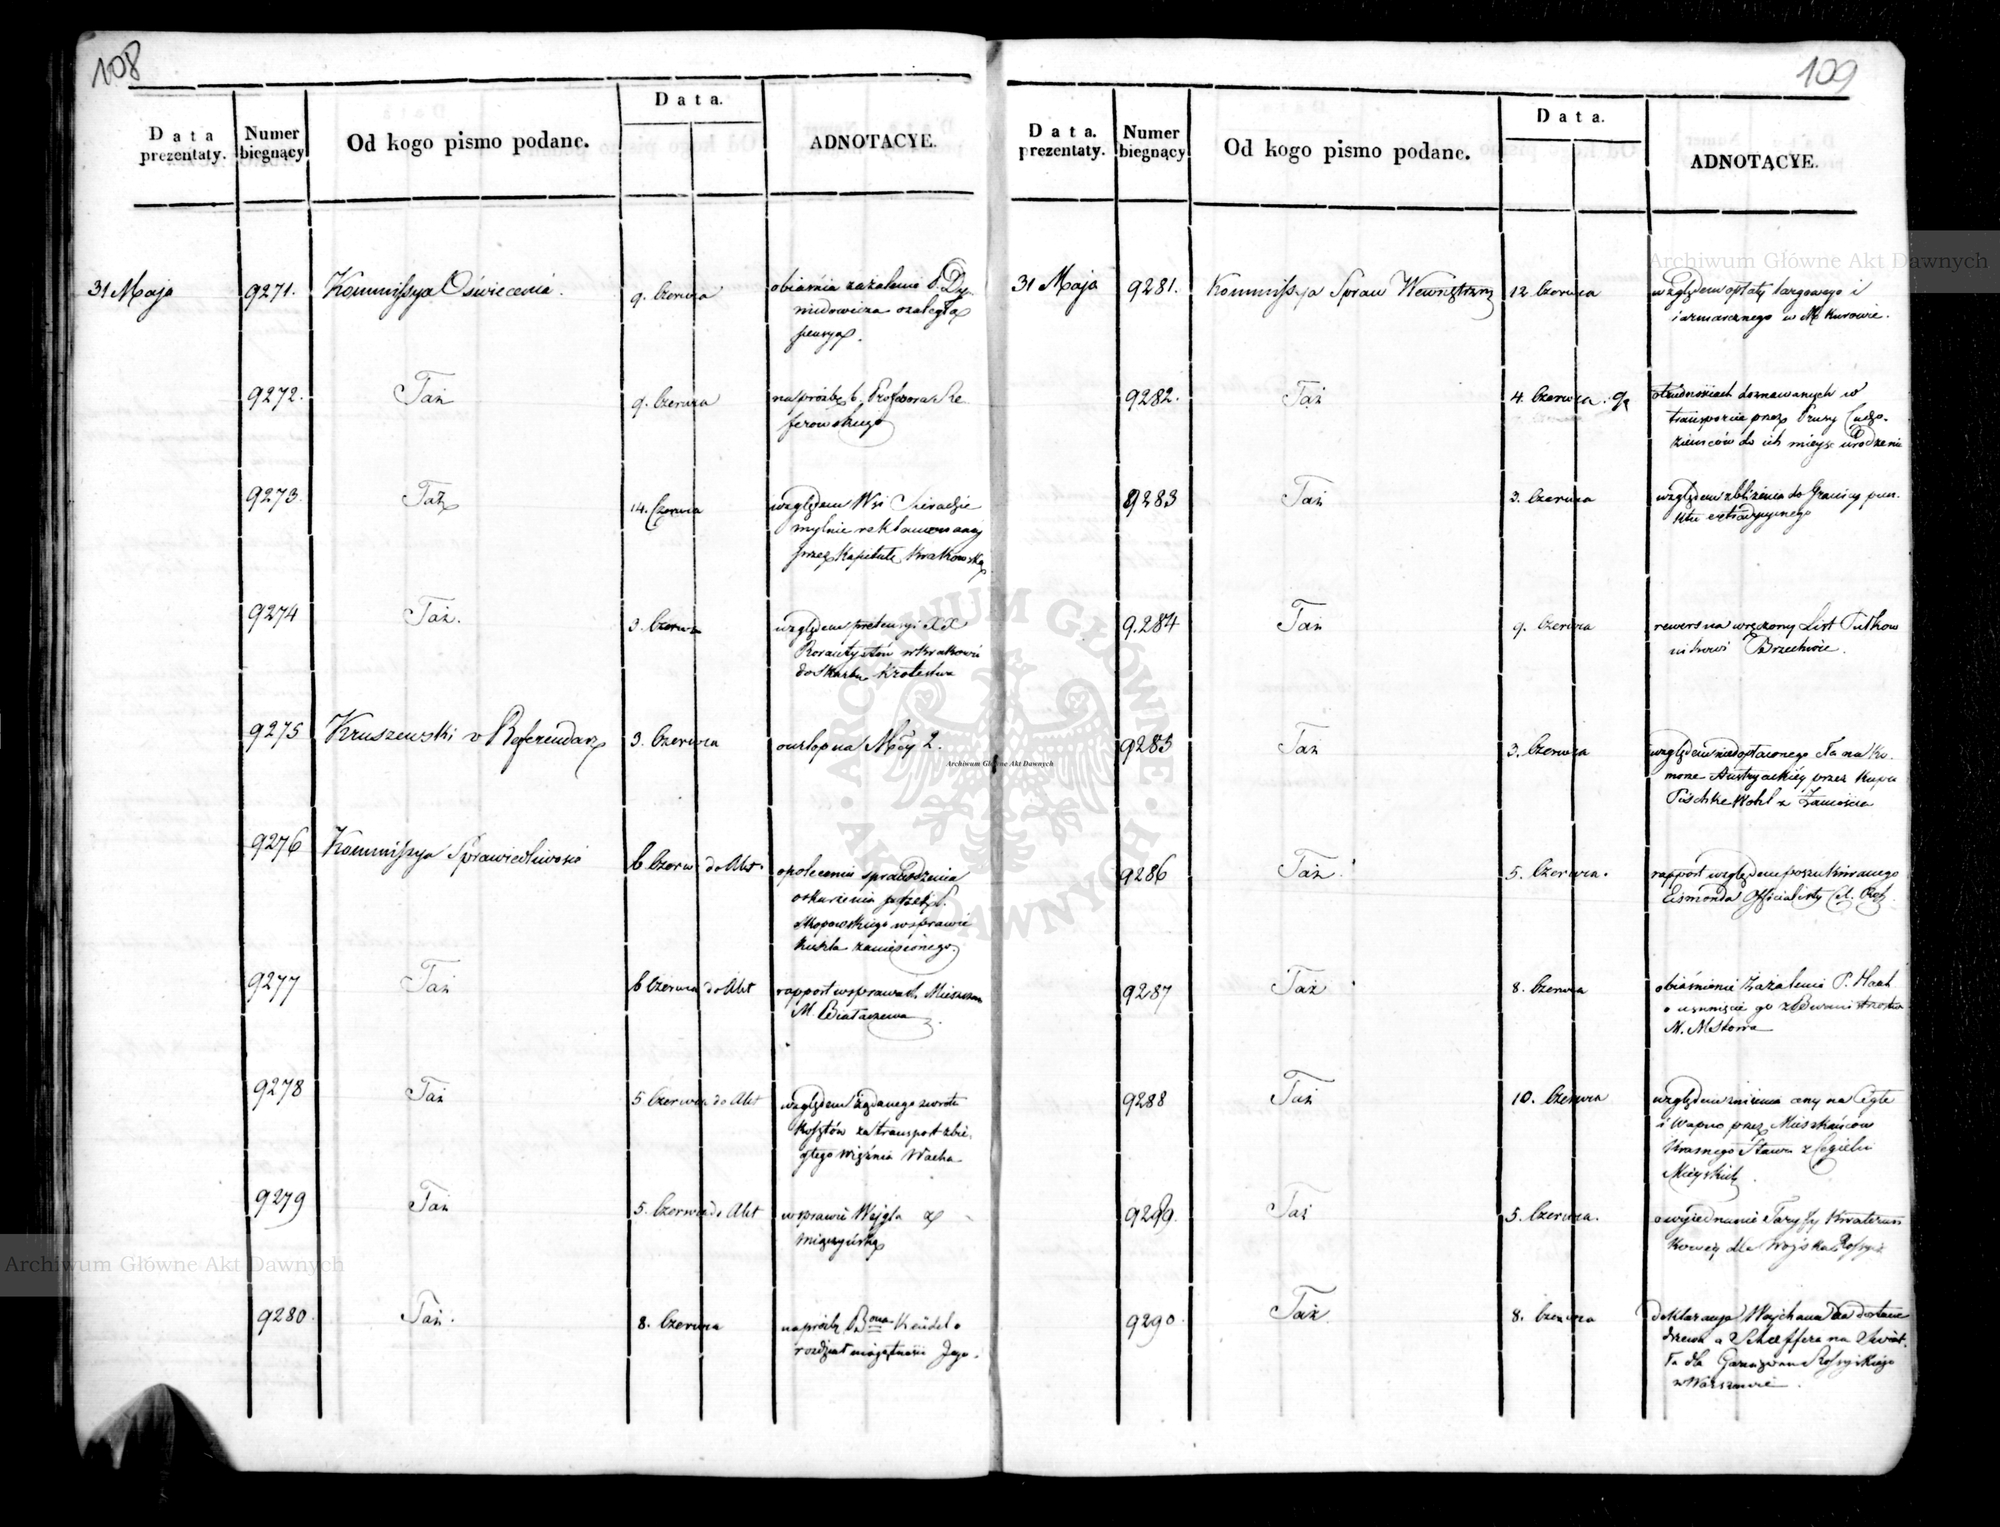 108
Data prezentaty.
Numer biegnący
Od kogo pismo podane.
Data.
ADNOTACYE.
31 Maja 9271. Kommissya Oświecenia. 9. Czerwca obiaśnia zażalenie
o zaległą
pensyą.
9272. Taż 9. Czerwca na prośbę b. Professora
9273. Taż 14. Czerwca względem Wsi Sieradzie
mylnie reklamowanej
przez Kapitułę Krakowską
9274 Taż. 3. Czerwca względem pretensyi XX
Rorantystów w Krakowie
do Skarbu Królestwa
9275 Kruszewski v Referendarz 3. Czerwca o urlop na Mcy 2.
9276 Kommissya Sprawiedliwości 6 Czerw do Akt. o polecenie sprawdzenia
oskarżenia przez P.
w sprawie
zaniesionego.
9277 Taż 6 Czerwca do Akt rapport w sprawach Mieszczan
M. Białaczewa
9278 Taż 5 Czerwca do Akt względem żądanego zwrotu
kosztów za transport zbie-
głego więźnia Wacha
9279 Taż 5. Czerwca do Akt w sprawie Wejgla z
9280. Taż. 8. Czerwca na prośbę
rozdział majątności Jego.
109
Data. prezentaty.
Numer biegnący
Od kogo pismo podane.
Data.
ADNOTACYE.
31 Maja 9281. Kommissya Spraw Wewnętrzn 12 Czerwca względem opłaty targowego i
iarmarcznego w M. Kurowie.
9282. Taż 4. Czerwca. o trudnościach doznawanych w
transporcie przez Prusy Cudzo-
ziemców do ich mieysc urodzenia
9283 Taż 3. Czerwca względem zbliżenia do Granicy pun-
ktu
9284 Taż 9. Czerwca rewers na wręczony List Pułkow
nikowi Brzechwie.
9285 Taż 3. Czerwca względem nadopłaconego Cła na Ko-
morze Austryackiéy przez Kupca
z Zamościa
9286 Taż. 5. Czerwca. rapport względem poszukiwanego
Eismonda Officialisty
9287 Taż 8. Czerwca obiaśnienie zażalenia P. Haak
o usunięcie go z
M. Mstowa
9288 Taż 10. Czerwca względem zniżenia ceny na Cegłe
i Wapno przez Mieszkańców
Krasnego Stawu z Cegielni
Mieyskich.
9289. Taż 5. Czerwca. o wyiednanie Taryffy Kwaterun
kowey dla Woyska Rossyis
9290. Taż. 8. Czerwca deklaracya na dostawe
drzewa a Scheffera na Świat-
ła dla Garnizonu Rossyiskiego
w Warszawie.
Archiwum Główne Akt Dawnych
ARCHIWUM GŁÓWNE AKT DAWNYCH
Archiwum Główne Akt Dawnych
Archiwum Główne Akt Dawnych